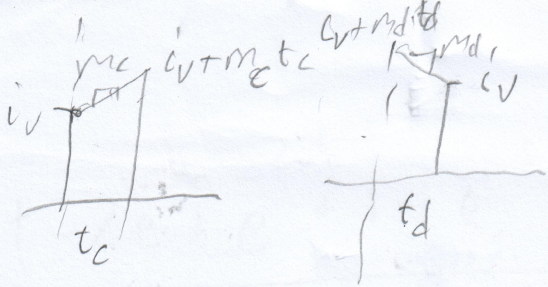 m_c
i_v + m_c t_c
i_v
t_c
i_v + m_d t_d
m_d
i_v
t_d